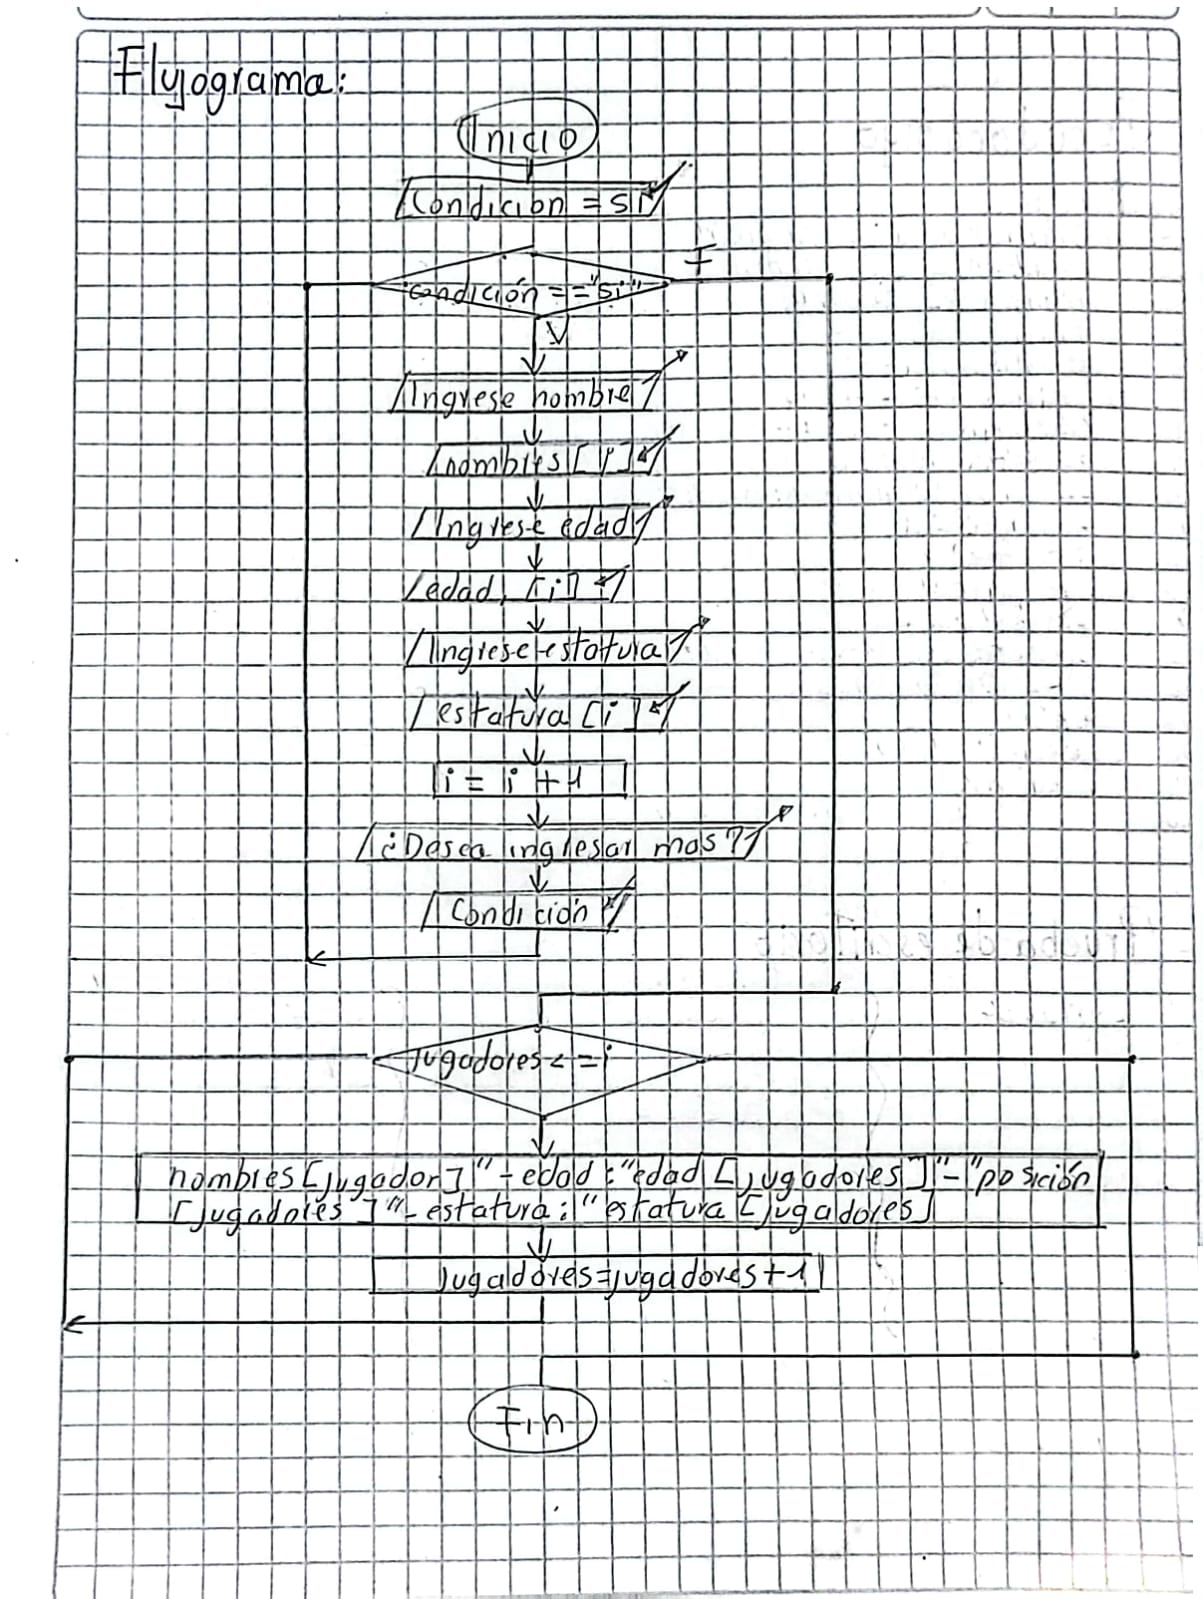 Flujograma:
Inicio
Condicion = si
F
condición == "si"
V
Ingrese nombre
nombres [i]
Ingrese edad
edad [i]
Ingrese estatura
estatura [i]
i = i + 1
¿Desea ingresar mas?
Condición
Jugadores <= i
nombres [jugador] "- edad: "edad [jugadores] "- "posición
[jugadores] "- estatura: "estatura [jugadores]
jugadores = jugadores + 1
Fin